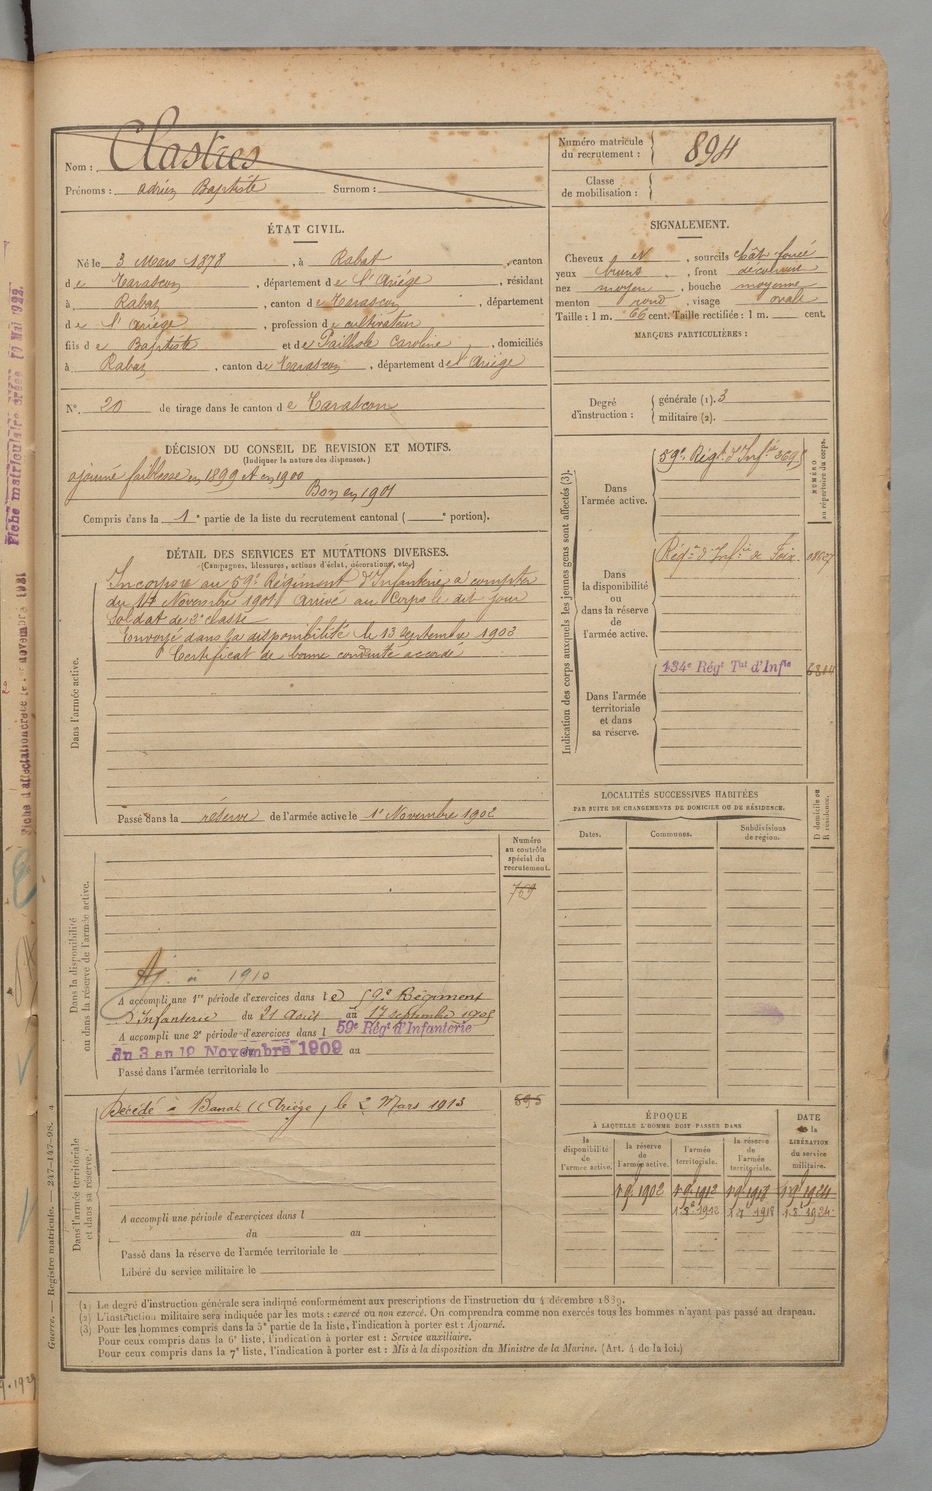 Nom : Clastres
Prénoms : adrien Baptiste Surnom :
Numéro matricule du recrutement : 894
Classe de mobilisation :
ÉTAT CIVIL.
Né le 3 Mars 1878, à Rabat, canton
de Tarascon, département de l'Ariége, résidant
à Rabat, canton de Tarascon, département
de l'Ariége, profession de cultivateur
fils de Baptiste et de Pailhole Caroline, domiciliés
à Rabat, canton de Tarascon, département de l'Ariége
N° 20 de tirage dans le canton de Tarascon
SIGNALEMENT.
Cheveux N, sourcils chât foncé
yeux bruns, front découvert
nez moyen, bouche moyenne
menton rond, visage ovale
Taille : 1 m. 66 cent. Taille rectifiée : 1 m. cent.
MARQUES PARTICULIÈRES :
Degré d'instruction : générale (1). 3
militaire (2).
DÉCISION DU CONSEIL DE REVISION ET MOTIFS.
(Indiquer la nature des dispenses.)
ajourné faiblesse en 1899 et en 1900
Bon en 1901
Compris dans la 1e partie de la liste du recrutement cantonal ( e portion).
DÉTAIL DES SERVICES ET MUTATIONS DIVERSES.
(Campagnes, blessures, actions d'éclat, décorations, etc.)
Dans l'armée active.
Incorporé au 59e Régiment d'Infanterie à compter
du 14 Novembre 1901 Arrivé au Corps le dit jour
Soldat de 2e classe
Envoyé dans la disponibilité le 13 septembre 1902
Certificat de bonne conduite accordé
Passé dans la réserve de l'armée active le 1er Novembre 1902
Indication des corps auxquels les jeunes gens sont affectés (3).
NUMÉRO au répertoire du corps.
Dans l'armée active.
59e Régt d'Infie 3695
Dans la disponibilité ou dans la réserve de l'armée active.
Régnt d'Infie de Foix
Dans l'armée territoriale et dans sa réserve.
134e Régt Tal d'Infie
LOCALITÉS SUCCESSIVES HABITÉES
PAR SUITE DE CHANGEMENTS DE DOMICILE OU DE RÉSIDENCE.
Dates. Communes. Subdivisions de région. D domicile ou R résidence.
Numéro au contrôle spécial du recrutement.
769
Dans la disponibilité ou dans la réserve de l'armée active.
Aj. à 1910
A accompli une 1re période d'exercices dans le 59e Régiment
d'Infanterie du 21 Août au 17 septembre 1905
A accompli une 2e période d'exercices dans l 59e Régt d'Infanterie
du 3 au 19 Novembre 1909 au
Passé dans l'armée territoriale le
Dans l'armée territoriale et dans sa réserve.
Décédé à Banat (Ariége) le 2 Mars 1913
A accompli une période d'exercices dans l
du au
Passé dans la réserve de l'armée territoriale le
Libéré du service militaire le
ÉPOQUE
À LAQUELLE L'HOMME DOIT PASSER DANS
la disponibilité de l'armée active. la réserve de l'armée active. l'armée territoriale. la réserve de l'armée territoriale.
DATE de la LIBÉRATION du service militaire.
(1) Le degré d'instruction générale sera indiqué conformément aux prescriptions de l'instruction du 4 décembre 1889.
(2) L'instruction militaire sera indiquée par les mots : exercé ou non exercé. On comprendra comme non exercés tous les hommes n'ayant pas passé au drapeau.
(3) Pour les hommes compris dans la 5e partie de la liste, l'indication à porter est : Ajourné.
Pour ceux compris dans la 6e liste, l'indication à porter est : Service auxiliaire.
Pour ceux compris dans la 7e liste, l'indication à porter est : Mis à la disposition du Ministre de la Marine. (Art. 4 de la loi.)
Guerre. — Registre matricule. — 247-147-98.